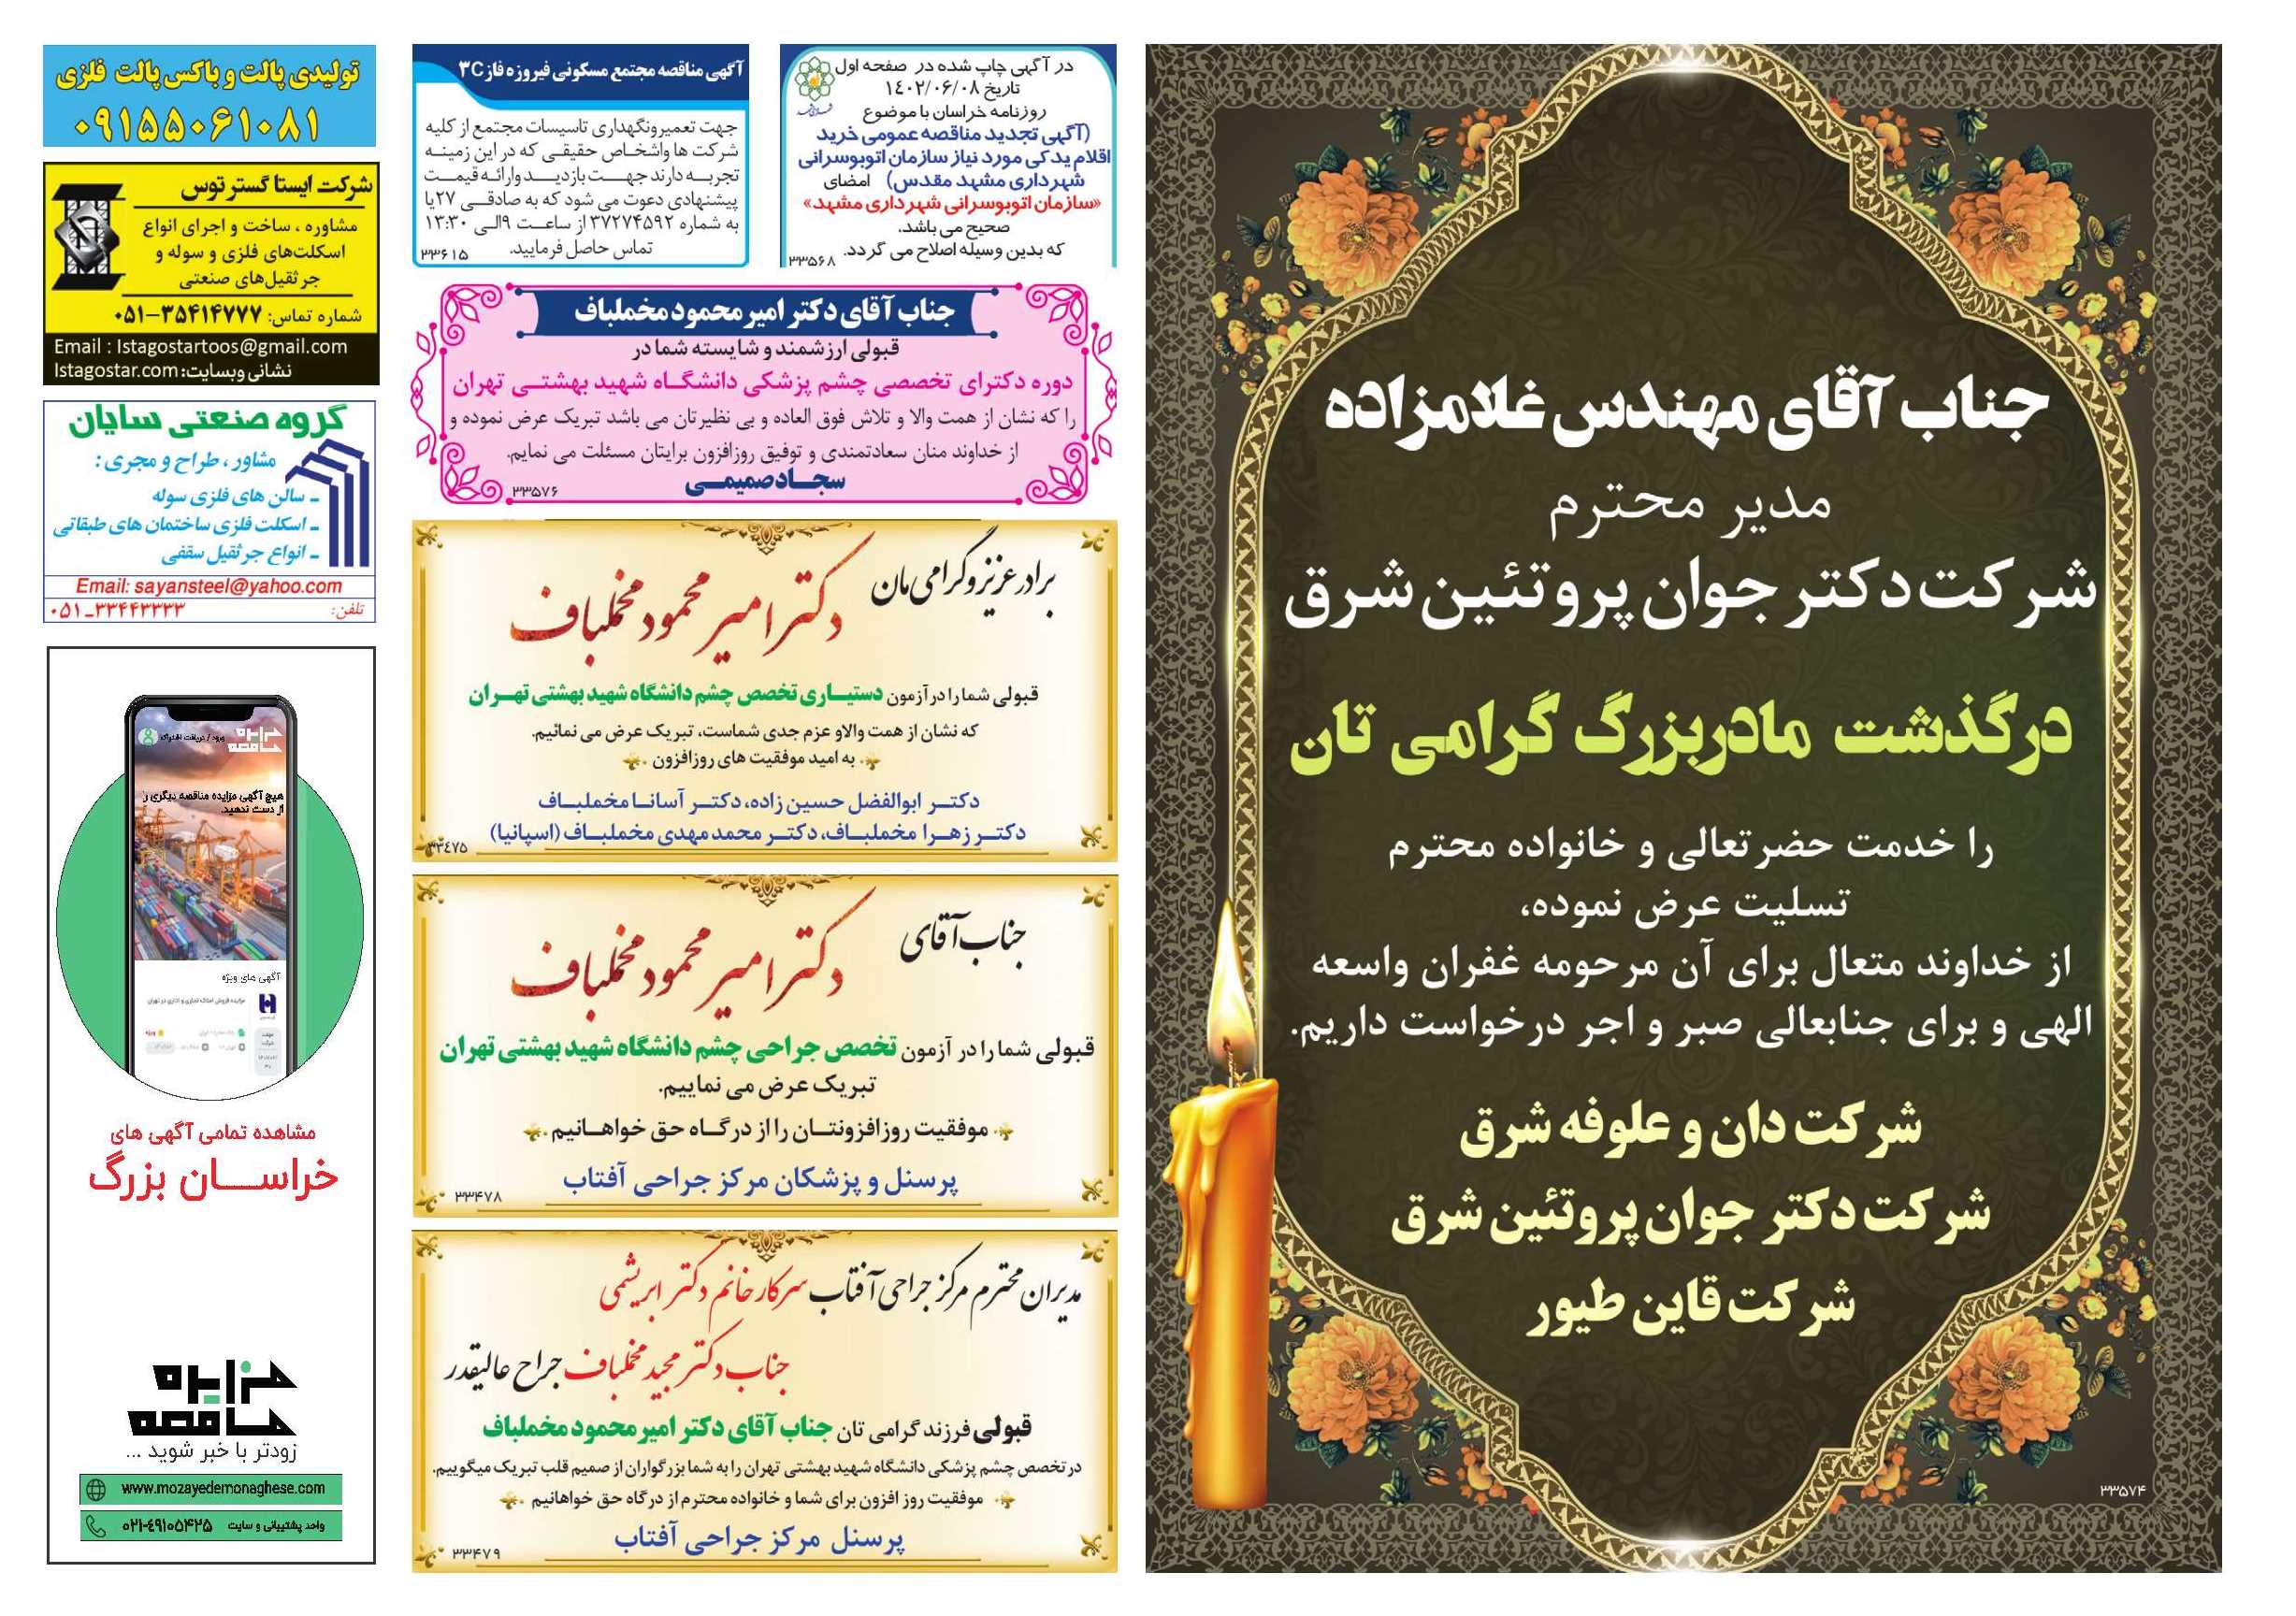 جناب آقای مهندس غلامزاده
مدیر محترم
شرکت دکتر جوان پروتئین شرق
درگذشت مادربزرگ گرامی تان
را خدمت حضرتعالی و خانواده محترم
تسلیت عرض نموده،
از خداوند متعال برای آن مرحومه غفران واسعه
الهی و برای جنابعالی صبر و اجر درخواست داریم.
شرکت دان و علوفه شرق
شرکت دکتر جوان پروتئین شرق
شرکت قاین طیور
۳۳۵۷۴
در آگهی چاپ شده در صفحه اول
تاریخ ۱۴۰۲/۰۶/۰۸
روزنامه خراسان با موضوع
(آگهی تجدید مناقصه عمومی خرید
اقلام یدکی مورد نیاز سازمان اتوبوسرانی
شهرداری مشهد مقدس) امضای
«سازمان اتوبوسرانی شهرداری مشهد»
صحیح می باشد.
که بدین وسیله اصلاح می گردد. ۳۳۵۶۸
آگهی مناقصه مجتمع مسکونی فیروزه فاز ۳C
جهت تعمیرونگهداری تاسیسات مجتمع از کلیه
شرکت ها واشخاص حقیقی که در این زمینه
تجربه دارند جهت بازدید وارائه قیمت
پیشنهادی دعوت می شود که به صادقی ۲۷یا
به شماره ۳۷۲۷۴۵۹۲ از ساعت ۹الی ۱۳:۳۰
تماس حاصل فرمایید. ۳۳۶۱۵
جناب آقای دکتر امیر محمود مخملباف
قبولی ارزشمند و شایسته شما در
دوره دکترای تخصصی چشم پزشکی دانشگاه شهید بهشتی تهران
را که نشان از همت والا و تلاش فوق العاده و بی نظیرتان می باشد تبریک عرض نموده و
از خداوند منان سعادتمندی و توفیق روزافزون برایتان مسئلت می نمایم.
سجاد صمیمی
۳۳۵۷۶
برادر عزیز و گرامی مان
دکتر امیر محمود مخملباف
قبولی شما را در آزمون دستیاری تخصص چشم دانشگاه شهید بهشتی تهران
که نشان از همت والاو عزم جدی شماست، تبریک عرض می نمائیم.
به امید موفقیت های روزافزون .
دکتر ابوالفضل حسین زاده، دکتر آسانا مخملباف
دکتر زهرا مخملباف، دکتر محمد مهدی مخملباف (اسپانیا)
۳۳٤۷۵
جناب آقای
دکتر امیر محمود مخملباف
قبولی شما را در آزمون تخصص جراحی چشم دانشگاه شهید بهشتی تهران
تبریک عرض می نماییم.
موفقیت روز افزونتان را از درگاه حق خواهانیم .
پرسنل و پزشکان مرکز جراحی آفتاب
۳۳۴۷۸
مدیران محترم مرکز جراحی آفتاب سرکار خانم دکتر ابریشمی
جناب دکتر مجید مخملباف جراح عالیقدر
قبولی فرزند گرامی تان جناب آقای دکتر امیر محمود مخملباف
در تخصص چشم پزشکی دانشگاه شهید بهشتی تهران را به شما بزرگواران از صمیم قلب تبریک میگوییم.
موفقیت روز افزون برای شما و خانواده محترم از درگاه حق خواهانیم .
پرسنل مرکز جراحی آفتاب
۳۳۴۷۹
تولیدی پالت و باکس پالت فلزی
۰۹۱۵۵۰۶۱۰۸۱
شرکت ایستا گستر توس
مشاوره ، ساخت و اجرای انواع
اسکلت‌های فلزی و سوله و
جرثقیل‌های صنعتی
شماره تماس: ۳۵۴۱۴۷۷۷–۰۵۱
Email : Istagostartoos@gmail.com
نشانی وبسایت: Istagostar.com
گروه صنعتی سایان
مشاور ، طراح و مجری :
ـ سالن های فلزی سوله
ـ اسکلت فلزی ساختمان های طبقاتی
ـ انواع جرثقیل سقفی
Email: sayansteel@yahoo.com
تلفن: ۰۵۱-۳۳۴۴۳۳۳۳
مزایده
مناقصه
ورود / دریافت اشتراک
هیچ آگهی مزایده مناقصه دیگری را
از دست ندهید.
آگهی های ویژه
مزایده فروش املاک تجاری و اداری در تهران
مشاهده تمامی آگهی های
خراسان بزرگ
مزایده
مناقصه
زودتر با خبر شوید ...
www.mozayedemonaghese.com
واحد پشتیبانی و سایت ۰۲۱-۴۹۱۰۵۴۲۵